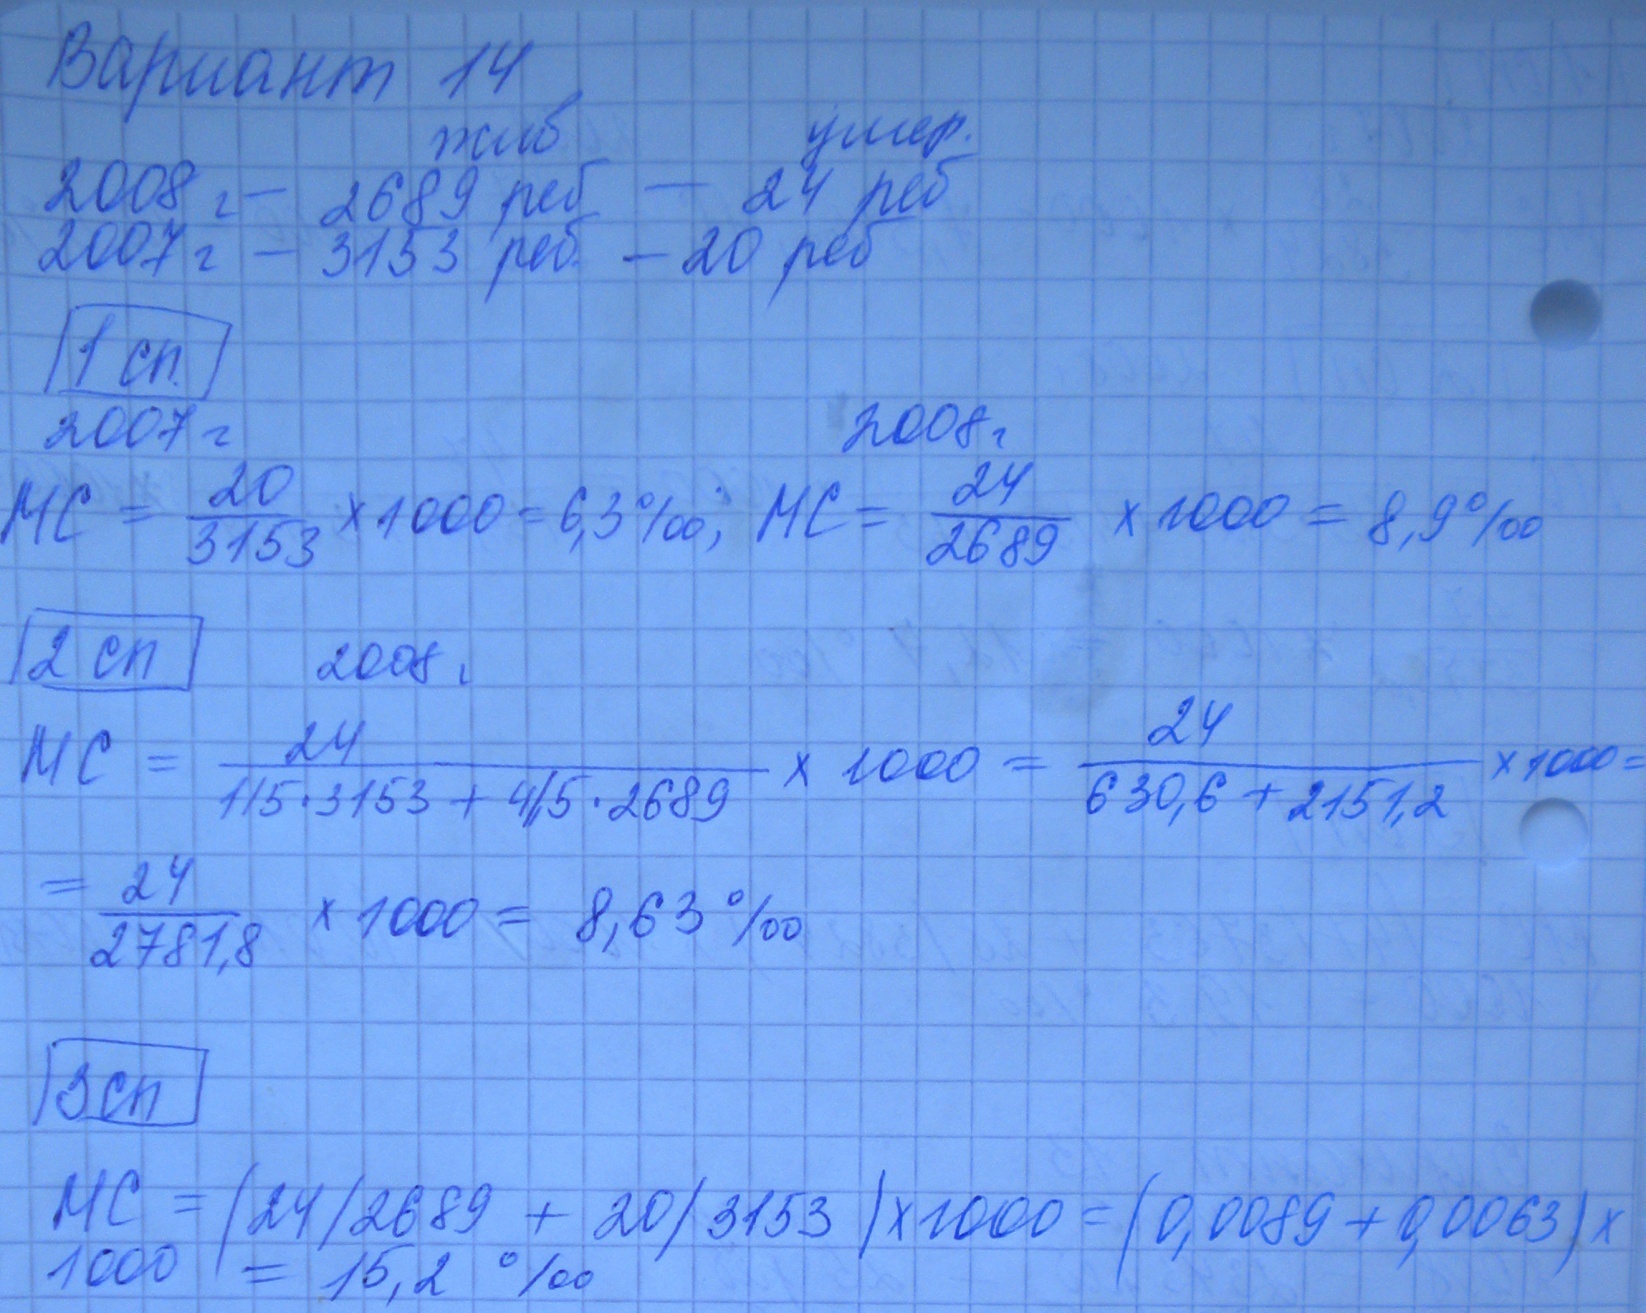 Вариант 14
жив умер.
2008 г – 2689 реб – 24 реб
2007 г – 3153 реб. – 20 реб
1 сп.
2007 г 2008 г
МС = 20/3153 х 1000 = 6,3 ‰; МС = 24/2689 х 1000 = 8,9 ‰
2 сп 2008 г
МС = 24/(1/5·3153 + 4/5·2689) х 1000 = 24/(630,6 + 2151,2) х 1000 =
= 24/2781,8 х 1000 = 8,63 ‰
3 сп
МС = (24/2689 + 20/3153) х 1000 = (0,0089 + 0,0063) х
1000 = 15,2 ‰